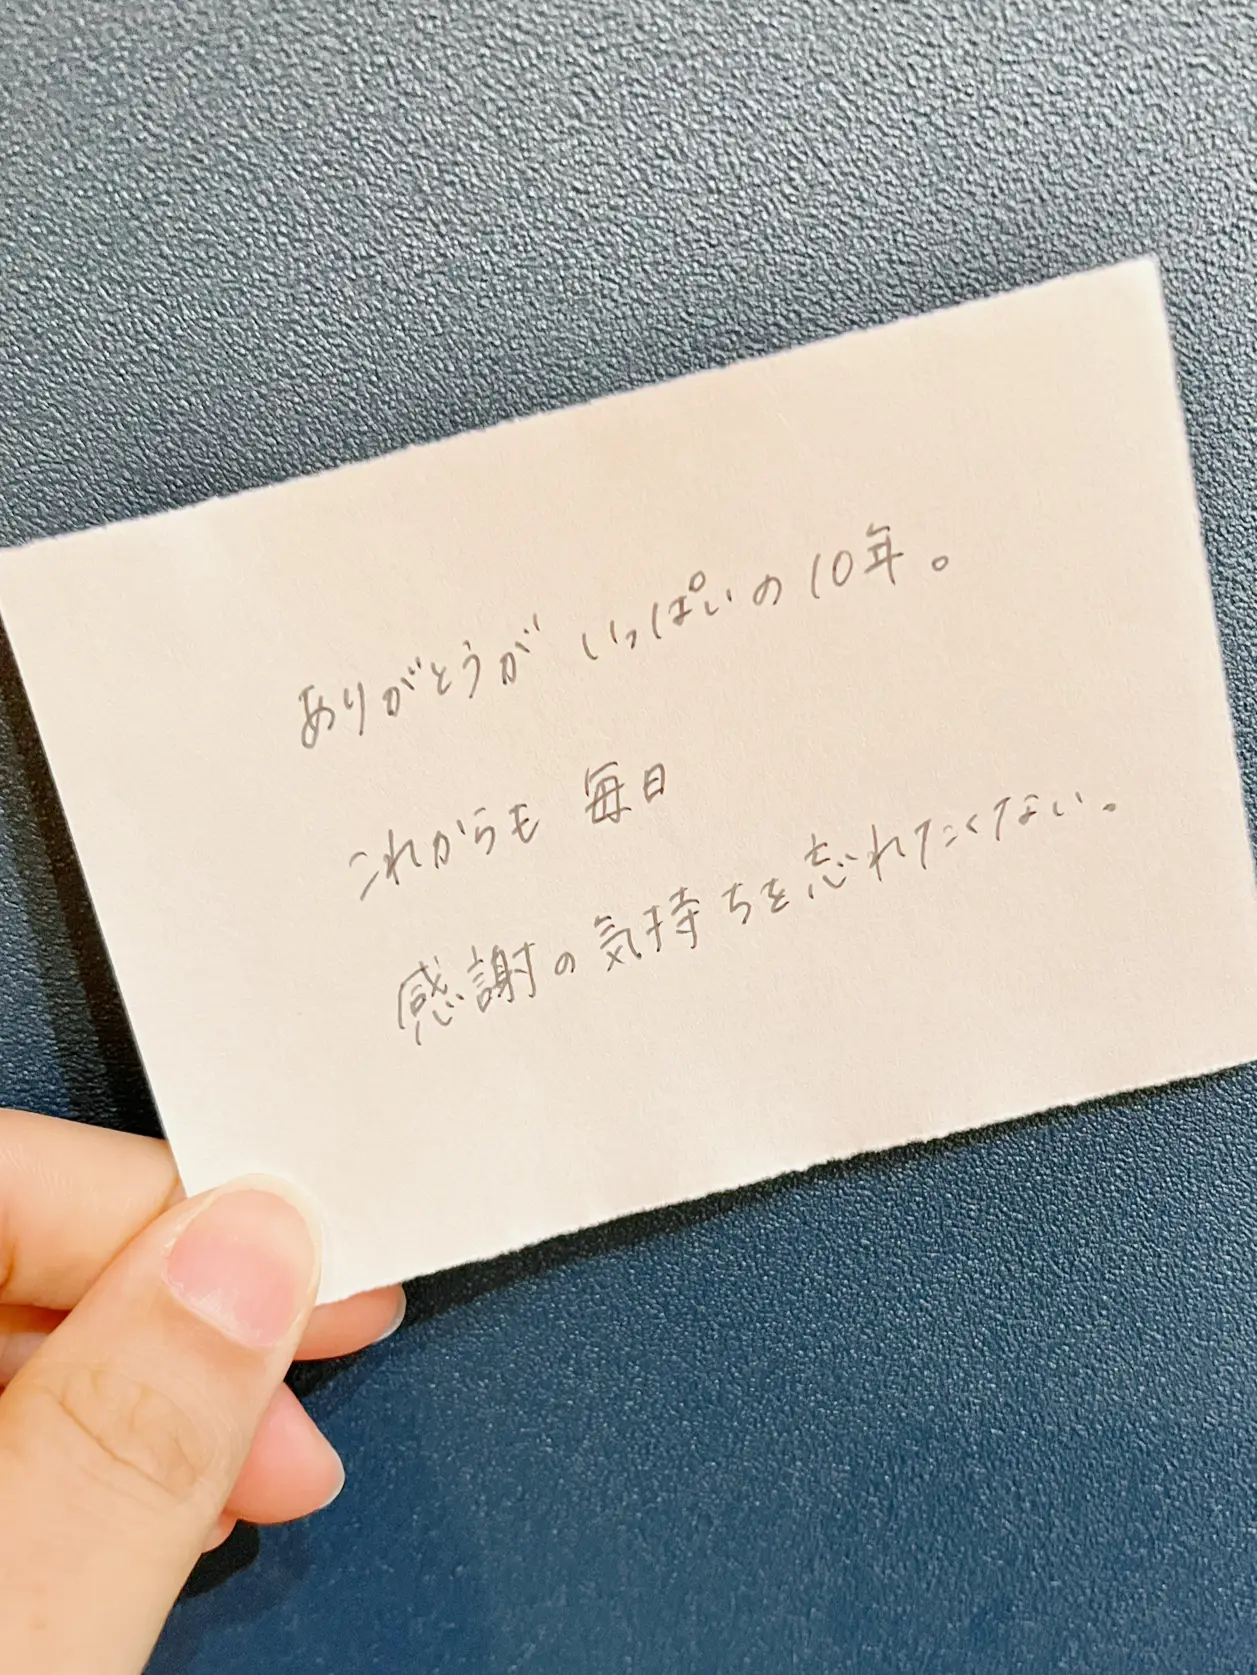 ありがとうが いっぱいの10年。
これからも 毎日
感謝の気持ちを忘れたくない。